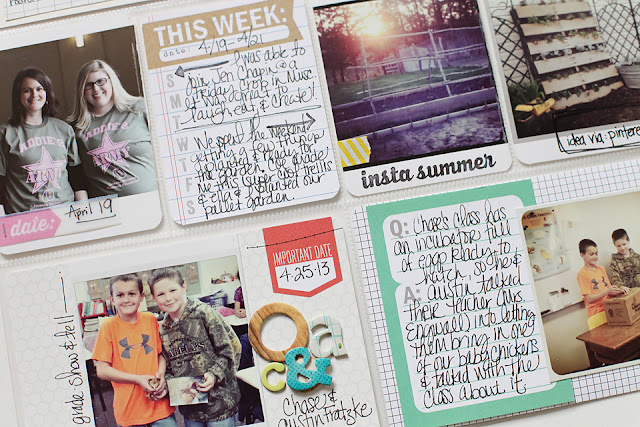 THIS WEEK:
date: 4/19-4/21
S
M
T
W
T
F
S
I was able to
join Jen Chapin @ a
Friday crop in
It was great to
laugh, eat & create!
We spent the weekend
getting a few things
planted & ready for
the garden.
me this super cool trellis
& clip & I planted our
pallet garden.
insta summer
idea via: pinterest
ADDIE'S
ADDIE'S
date: April 19
IMPORTANT DATE
4-25-13
grade show & tell
Q
a
c&t
Chase &
Austin Fratzke
Q: Chase's class has
an incubator full
of eggs ready to
hatch, so he &
A: Austin talked
their teacher (Mrs.
Engwall) into letting
them bring in one
of our baby chickens
& talked with the
class about it.